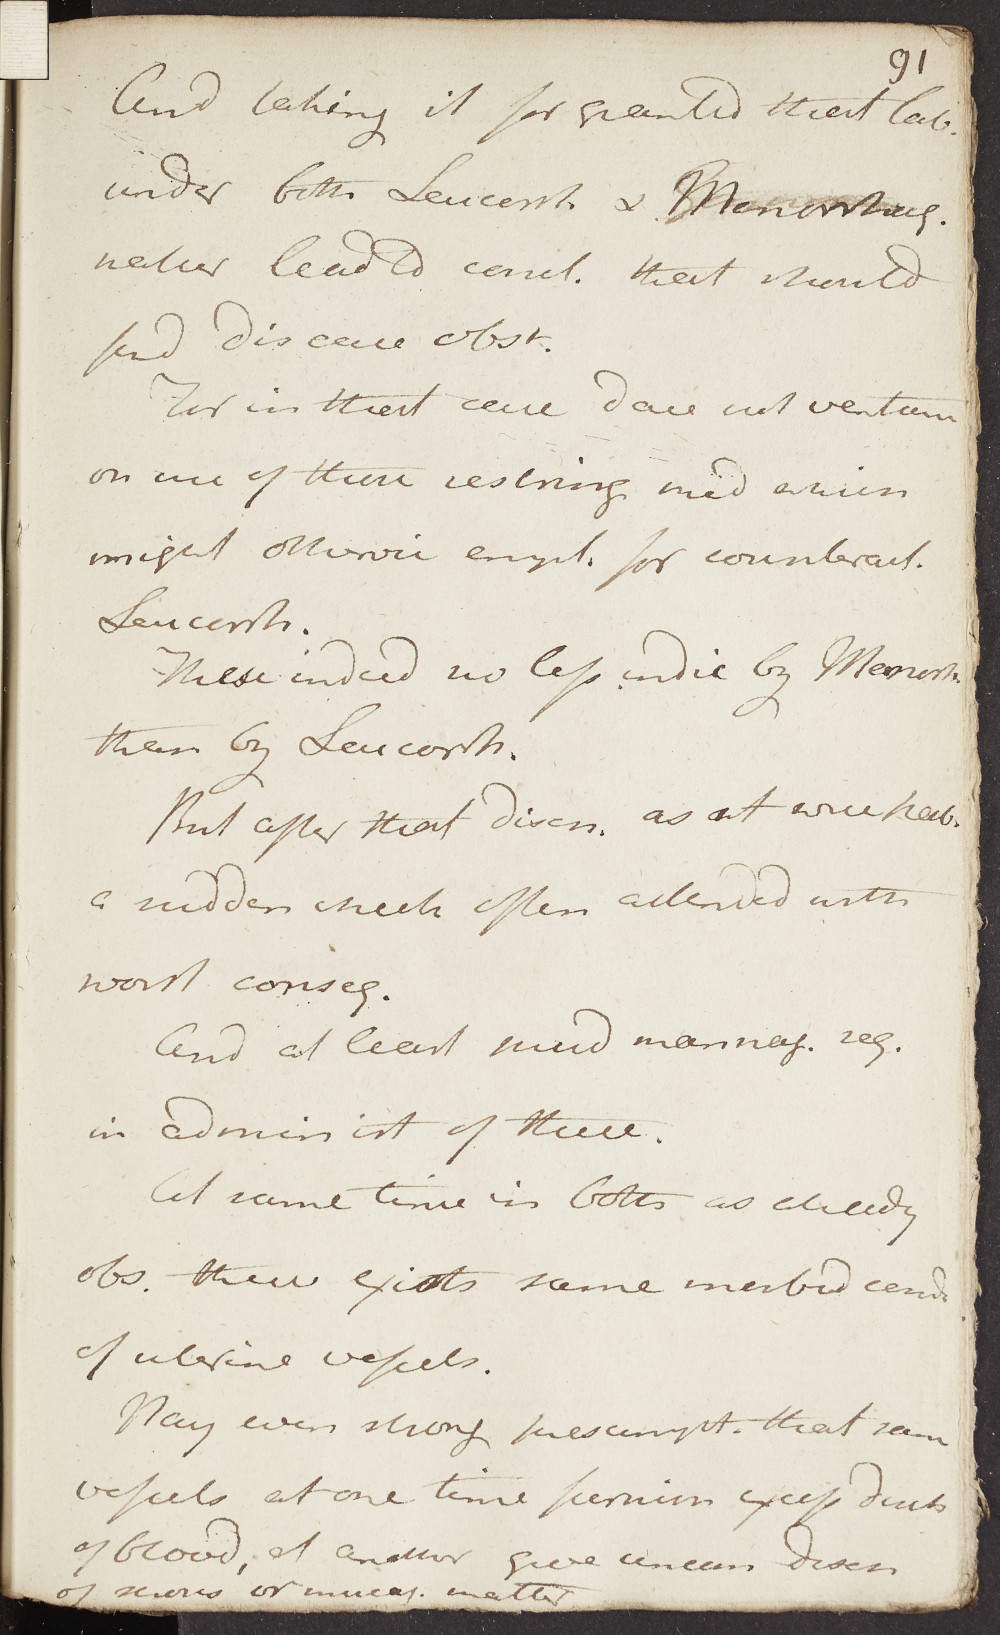 91
And taking it for granted that lab.
under both Leucorrh. & Menorrhag.
rather lead to concl. that should
find disease obst.
For in that case dare not venture
on use of those restring. med which
might otherwise empl. for counteract.
Leucorrh.
These indeed no less indic by Menorrh.
than by Leucorrh.
But after that disch. as it were hab.
a sudden check often attended with
worst conseq.
And at least much mannag. req.
in administ of these.
At same time in both as already
obs. there exists same morbid cond.
of uterine vessels.
Nay even strong presumpt. that same
vessels at one time furnish excess disch
of blood, at another give uncom disch
of serous or mucag. matter